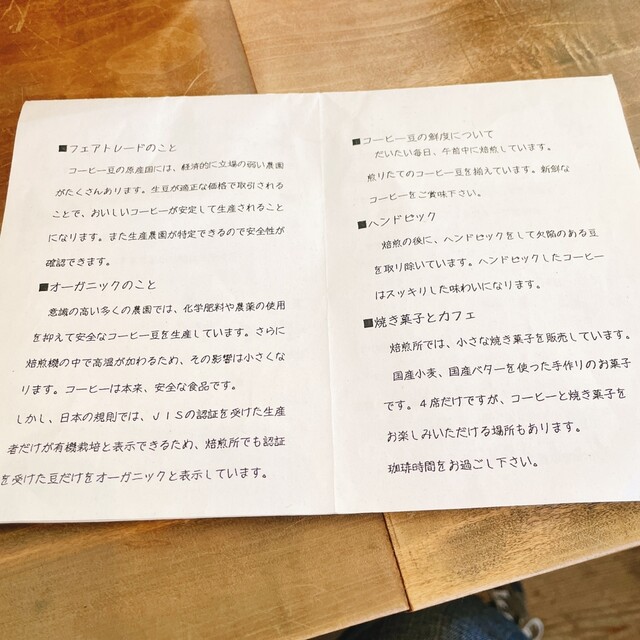 ■フェアトレードのこと
コーヒー豆の原産国には、経済的に立場の弱い農園
がたくさんあります。生豆が適正な価格で取引される
ことで、おいしいコーヒーが安定して生産されること
になります。また生産農園が特定できるので安全性が
確認できます。
■オーガニックのこと
意識の高い多くの農園では、化学肥料や農薬の使用
を抑えて安全なコーヒー豆を生産しています。さらに
焙煎機の中で高温が加わるため、その影響は小さくな
ります。コーヒーは本来、安全な食品です。
しかし、日本の規則では、JISの認証を受けた生産
者だけが有機栽培と表示できるため、焙煎所でも認証
を受けた豆だけをオーガニックと表示しています。
■コーヒー豆の鮮度について
だいたい毎日、午前中に焙煎しています。
煎りたてのコーヒー豆を揃えています。新鮮な
コーヒーをご賞味下さい。
■ハンドピック
焙煎の後に、ハンドピックをして欠陥のある豆
を取り除いています。ハンドピックしたコーヒー
はスッキリした味わいになります。
■焼き菓子とカフェ
焙煎所では、小さな焼き菓子を販売しています。
国産小麦、国産バターを使った手作りのお菓子
です。4席だけですが、コーヒーと焼き菓子を
お楽しみいただける場所もあります。
珈琲時間をお過ごし下さい。